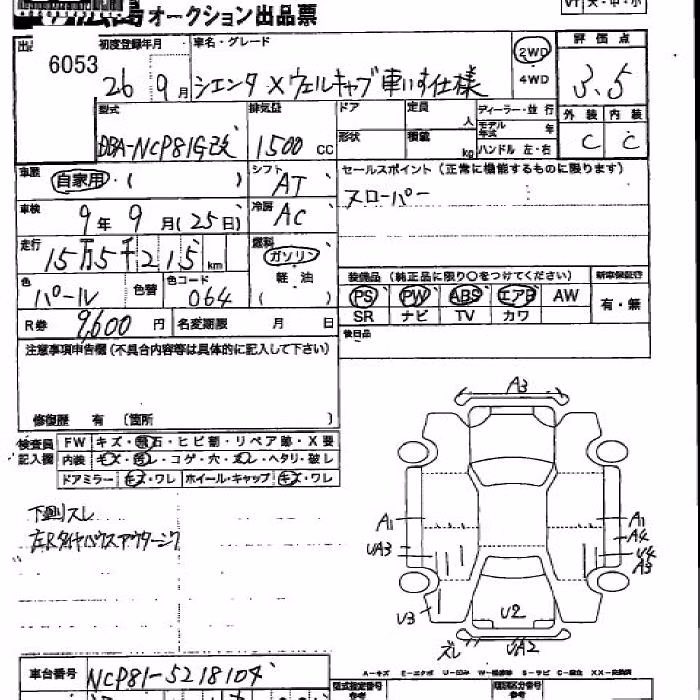 オークション出品票
VT 大・中・小
6053
初度登録年月 車名・グレード 評価点
26 9月 シエンタ X ウェルキャブ 車いす仕様 2WD 4WD 3.5
型式 排気量 ドア 定員 人 ディーラー・並行 外装 内装
DBA-NCP81G改 1500 CC 形状 積載 kg モデル年式 年 ハンドル 左・右 C C
車歴 自家用・( ) シフト AT セールスポイント (正常に機能するものに限ります)
車検 9年9月(25日) 冷房 AC スローパー
走行 15万5千215 km 燃料 ガソリン 軽油 ( )
色 パール 色替 色コード 064
装備品 (純正品に限り○をつけてください) 新車保証書
PS PW ABS エアB AW 有・無
SR ナビ TV カワ
R券 9,600円 名変期限 月 日 後日品
注意事項申告欄 (不具合内容等は具体的に記入して下さい)
修復歴 有 〔箇所 〕
検査員記入欄 FW キズ・飛石・ヒビ割・リペア跡・X要
内装 キズ・汚レ・コゲ・穴・スレ・ヘタリ・破レ
ドアミラー キズ・ワレ ホイール・キャップ キズ・ワレ
下廻スレ
左Rタイヤハウスアウターサビ
A3
A1 A1
A4
UA3 U4
A3
U3 U2
スレ UA2
車台番号 NCP81-5218104
A-キズ E-エクボ U-凹み
型式指定番号 参考 類別区分番号 参考